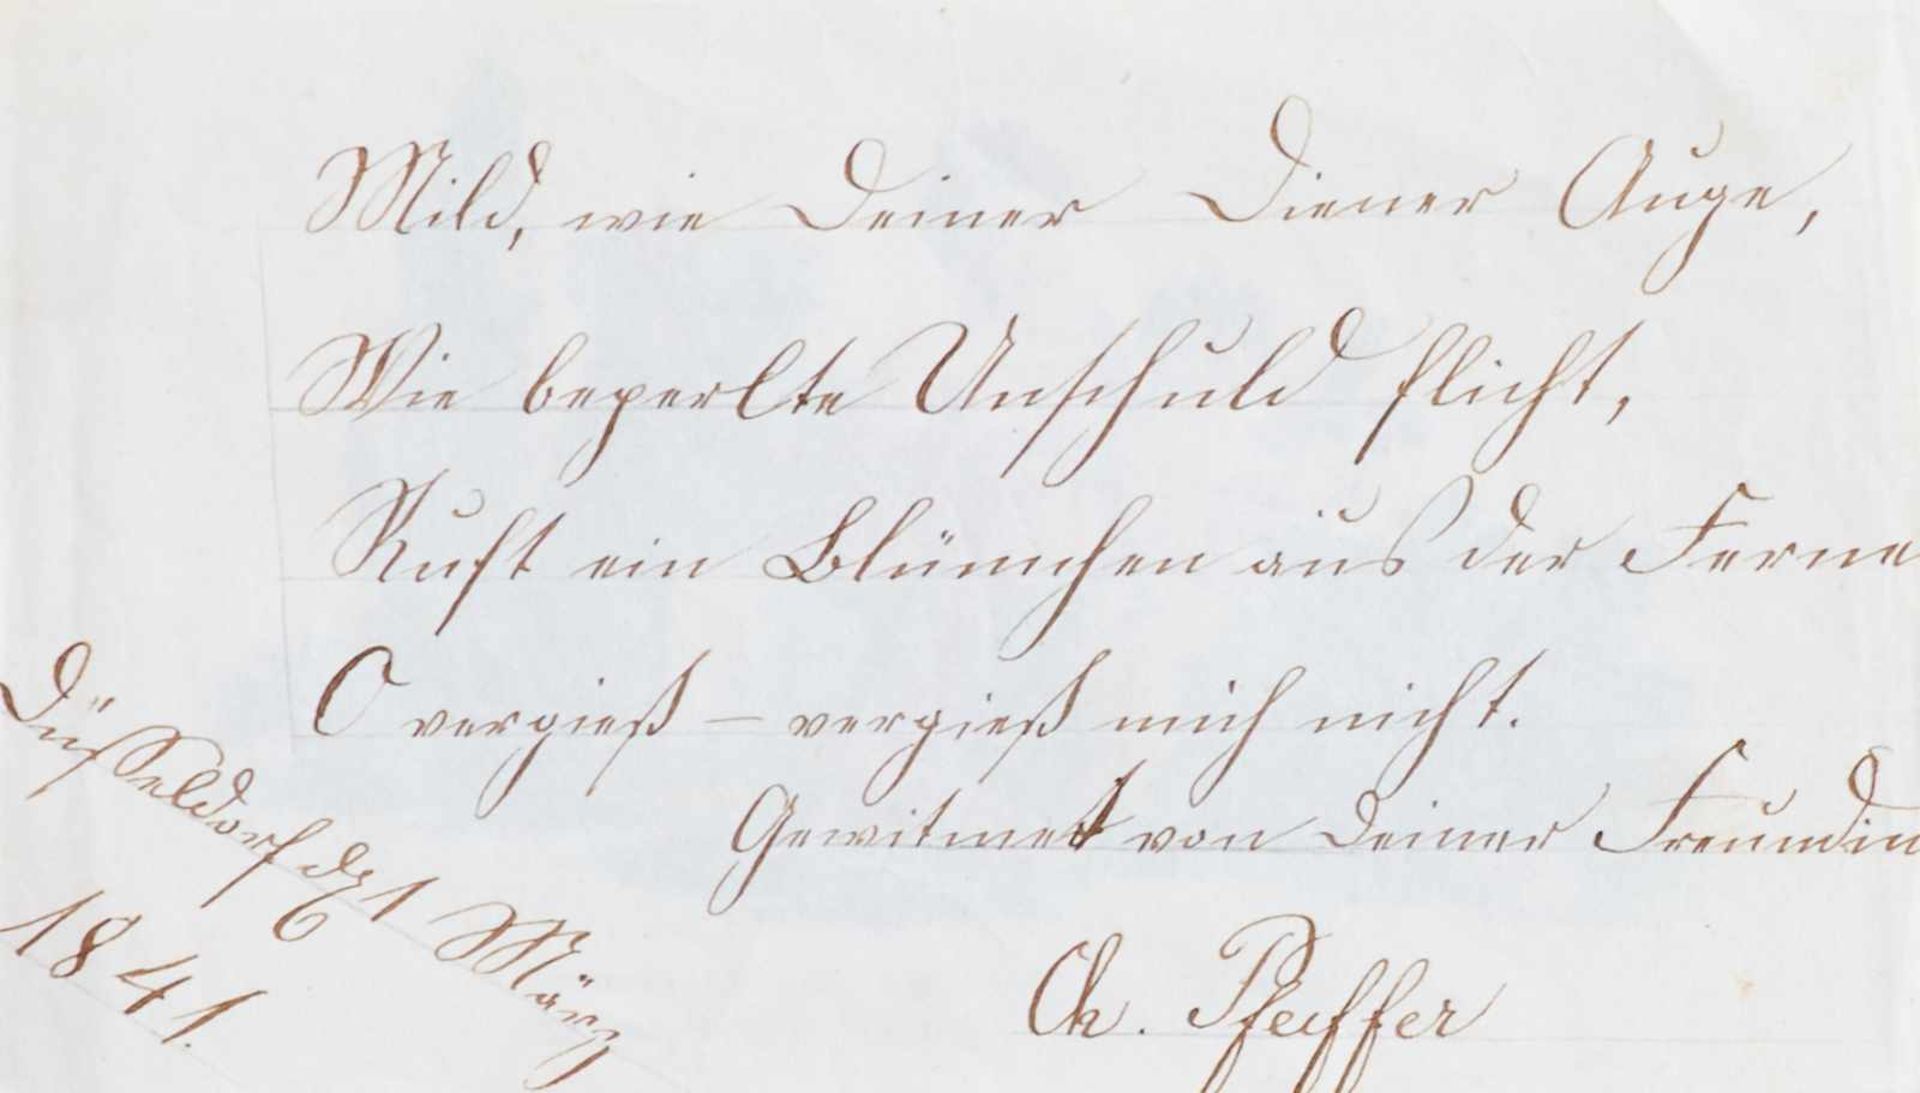 Mild, wie Deiner Diener Auge,
Wie beperlte Unschuld flicht,
Ruft ein Blümchen aus der Ferne
O vergieß – vergieß mich nicht.
Gewitmet von Deiner Freundin
Ch. Pfeiffer
Düsseldorf den 1 März
1841.